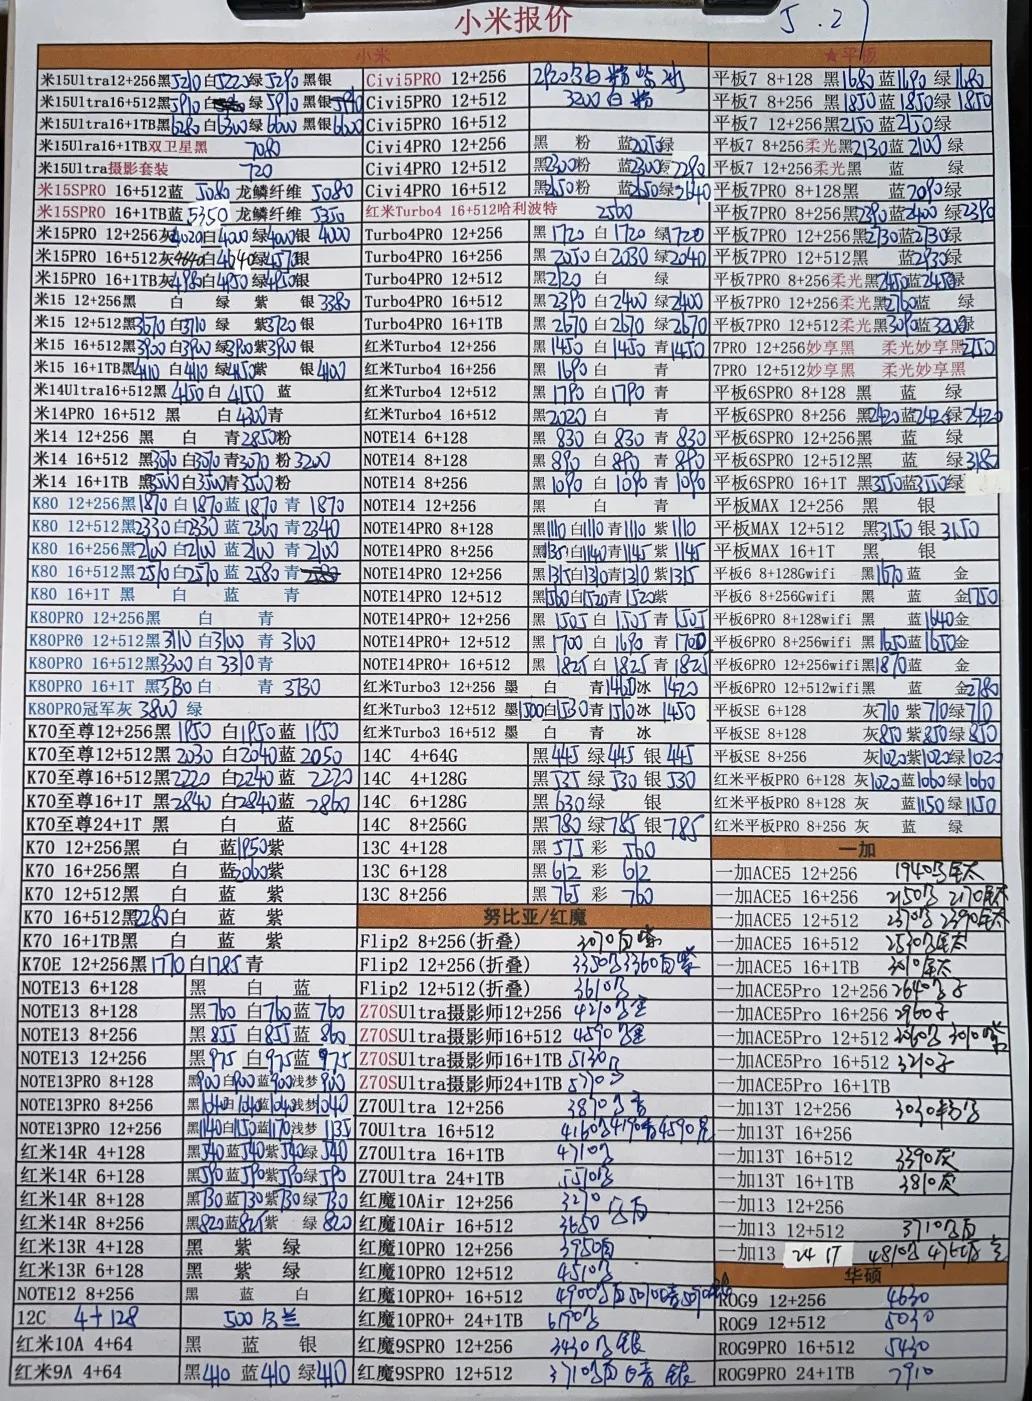 小米报价
5.27
小米
米15Ultra12+256黑5210白5220绿5290黑银
米15Ultra16+512黑5910白 绿5910黑银
米15Ultra16+1TB黑6280白6300绿6600黑银6600
米15Ulra16+1TB双卫星黑 7080
米15Ultra摄影套装 720
米15SPRO 16+512蓝 5080 龙鳞纤维 5080
米15SPRO 16+1TB蓝 5350 龙鳞纤维 5350
米15PRO 12+256灰4020白4000绿4000银 4000
米15PRO 16+512灰4640白4640绿4570银
米15PRO 16+1TB灰4980白4950绿4950银
米15 12+256黑 白 绿 紫 银3380
米15 12+512黑3670白3710 绿 紫3720银
米15 16+512黑3900白3900绿3900紫3900银
米15 16+1TB黑4110白4110绿4150紫 银4100
米14Ultra16+512黑4150白4150 蓝
米14PRO 16+512 黑 白4300青
米14 12+256 黑 白 青2850粉
米14 16+512 黑3070白3070青3070 粉3200
米14 16+1TB 黑3500白3500青3500 粉
K80 12+256黑1870白1870蓝1870 青 1870
K80 12+512黑2330白2330 蓝2360青2340
K80 16+256黑2100白2100 蓝2100 青2100
K80 16+512黑2570白2570 蓝2580青
K80 16+1T 黑 白 蓝 青
K80PRO 12+256黑 白 青
K80PRO 12+512黑3110白3100 青 3100
K80PRO 16+512黑3300白 3310青
K80PRO 16+1T 黑3730白 青 3730
K80PRO冠军灰 3800 绿
K70至尊12+256黑 1950 白1950蓝 1950
K70至尊12+512黑2030 白2040蓝 2050
K70至尊16+512黑2220 白2240蓝 2220
K70至尊16+1T 黑2840 白2840蓝 2860
K70至尊24+1T 黑 白 蓝
K70 12+256黑 白 蓝1950紫
K70 16+256黑 白 蓝2060紫
K70 12+512黑 白 蓝 紫
K70 16+512黑2280白 蓝 紫
K70 16+1TB黑 白 蓝 紫
K70E 12+256黑1770白1785青
NOTE13 6+128 黑 白 蓝
NOTE13 8+128 黑760 白760蓝760
NOTE13 8+256 黑855 白855蓝 860
NOTE13 12+256 黑975 白975蓝 975
NOTE13PRO 8+128 黑900白900蓝900浅梦900
NOTE13PRO 8+256 黑1040白1040蓝1040浅梦1040
NOTE13PRO 12+256 黑1140白1150蓝1170浅梦 1135
红米14R 4+128 黑540蓝540紫540绿540
红米14R 6+128 黑590蓝590紫590绿590
红米14R 8+128 黑730蓝730紫730绿730
红米14R 8+256 黑820蓝825紫 绿820
红米13R 4+128 黑 紫 绿
红米13R 6+128 黑 紫 绿
NOTE12 8+256 黑 蓝 白
12C 4+128 500乌兰
红米10A 4+64 黑 蓝 银
红米9A 4+64 黑410 蓝410 绿410
Civi5PRO 12+256 2920乌白粉紫冰
Civi5PRO 12+512 3200白粉
Civi5PRO 16+512
Civi4PRO 12+256 黑 粉 蓝2050绿
Civi4PRO 12+512 黑2300粉 蓝2300绿2290
Civi4PRO 16+512 黑2650粉 蓝2650绿2640
红米Turbo4 16+512哈利波特 2560
Turbo4PRO 12+256 黑1720 白1720 绿1720
Turbo4PRO 16+256 黑 2050白2030 绿2040
Turbo4PRO 12+512 黑2120 白 绿
Turbo4PRO 16+512 黑2390 白2400 绿2400
Turbo4PRO 16+1TB 黑2670 白2670 绿2670
红米Turbo4 12+256 黑1450 白1450 青1450
红米Turbo4 16+256 黑1690 白 青
红米Turbo4 12+512 黑1790 白1790 青
红米Turbo4 16+512 黑2020 白 青
NOTE14 6+128 黑 830 白 830 青 830
NOTE14 8+128 黑 890 白 890 青 890
NOTE14 8+256 黑1090 白1090 青1090
NOTE14 12+256 黑 白 青
NOTE14PRO 8+128 黑1110白1110青1110紫1110
NOTE14PRO 8+256 黑1135白1140青1145紫1145
NOTE14PRO 12+256 黑1315白1310青1310紫1315
NOTE14PRO 12+512 黑1560白1520青1520紫
NOTE14PRO+ 12+256 黑 1505 白 1505 青 1505
NOTE14PRO+ 12+512 黑 1700 白1690 青 1700
NOTE14PRO+ 16+512 黑 1825 白 1825 青 1825
红米Turbo3 12+256 墨 白 青1460冰 1420
红米Turbo3 12+512 墨1500白1530青1510冰 1450
红米Turbo3 16+512 墨 白 青 冰
14C 4+64G 黑445 绿445 银445
14C 4+128G 黑535 绿530 银530
14C 6+128G 黑630绿 银
14C 8+256G 黑780 绿785 银785
13C 4+128 黑575 彩 560
13C 6+128 黑612 彩 612
13C 8+256 黑765 彩 760
努比亚/红魔
Flip2 8+256(折叠) 3070白紫
Flip2 12+256(折叠) 3350乌3360白紫
Flip2 12+512(折叠) 3610乌
Z70SUltra摄影师12+256 4210乌金
Z70SUltra摄影师16+512 4590乌金
Z70SUltra摄影师16+1TB 5130乌
Z70SUltra摄影师24+1TB 5710
Z70Ultra 12+256 3870乌青
70Ultra 16+512 4160乌4190青4590
Z70Ultra 16+1TB 4710乌
Z70Ultra 24+1TB 5510乌
红魔10Air 12+256 3270
红魔10Air 16+512 3650 乌白
红魔10PRO 12+256 3950白
红魔10PRO 12+512 4510乌
红魔10PRO+ 16+512 4900乌白
红魔10PRO+ 24+1TB 6170乌
红魔9SPRO 12+256 3430乌银
红魔9SPRO 12+512 3710乌白 银
★平板
平板7 8+128 黑1680蓝1690 绿1680
平板7 8+256 黑1850蓝1850绿1850
平板7 12+256 黑2150 蓝2150绿
平板7 8+256柔光黑2130蓝2100 绿
平板7 12+256柔光黑 蓝 绿
平板7PRO 8+128黑 蓝2090绿
平板7PRO 8+256黑2390蓝2400绿2390
平板7PRO 12+256黑2730蓝2730绿
平板7PRO 12+512黑 蓝2930绿
平板7PRO 8+256柔光黑2450蓝2450绿
平板7PRO 12+256柔光黑2760蓝 绿
平板7PRO 12+512柔光黑3090蓝3200绿
7PRO 12+256妙享黑 柔光妙享黑
7PRO 12+512妙享黑 柔光妙享黑
平板6SPRO 8+128 黑 蓝 绿
平板6SPRO 8+256 黑2420蓝2420绿2420
平板6SPRO 12+256黑 蓝 绿
平板6SPRO 12+512黑 蓝 绿3180
平板6SPRO 16+1T 黑3550蓝3550绿
平板MAX 12+256 黑 银
平板MAX 12+512 黑3150 银3150
平板MAX 16+1T 黑 银
平板6 8+128Gwifi 黑1670蓝 金
平板6 8+256Gwifi 黑 蓝 金1750
平板6PRO 8+128wifi 黑 蓝1640金
平板6PRO 8+256wifi 黑1650蓝1650金
平板6PRO 12+256wifi黑1870蓝 金
平板6PRO 12+512wifi黑 蓝 金2780
平板SE 6+128 灰710 紫710绿710
平板SE 8+128 灰850 紫850绿850
平板SE 8+256 灰1020紫1020绿1020
红米平板PRO 6+128 灰1020蓝1060绿1060
红米平板PRO 8+128 灰 蓝1150绿1150
红米平板PRO 8+256 灰 蓝 绿
一加
一加ACE5 12+256 1940乌钛
一加ACE5 16+256 2150乌 2170钛
一加ACE5 12+512 2370乌 2390钛
一加ACE5 16+512 2530乌钛
一加ACE5 16+1TB 3010钛
一加ACE5Pro 12+256 2640乌子
一加ACE5Pro 16+256 2960子
一加ACE5Pro 12+512 3060乌 3010紫
一加ACE5Pro 16+512 3210子
一加ACE5Pro 16+1TB
一加13T 12+256 3030粉乌
一加13T 16+256
一加13T 16+512 3390灰
一加13T 16+1TB 3810灰
一加13 12+256
一加13 12+512 3710乌白
一加13 24 1T 4810乌
华硕
ROG9 12+256 4630
ROG9 12+512 5030
ROG9PRO 16+512 5430
ROG9PRO 24+1TB 7910